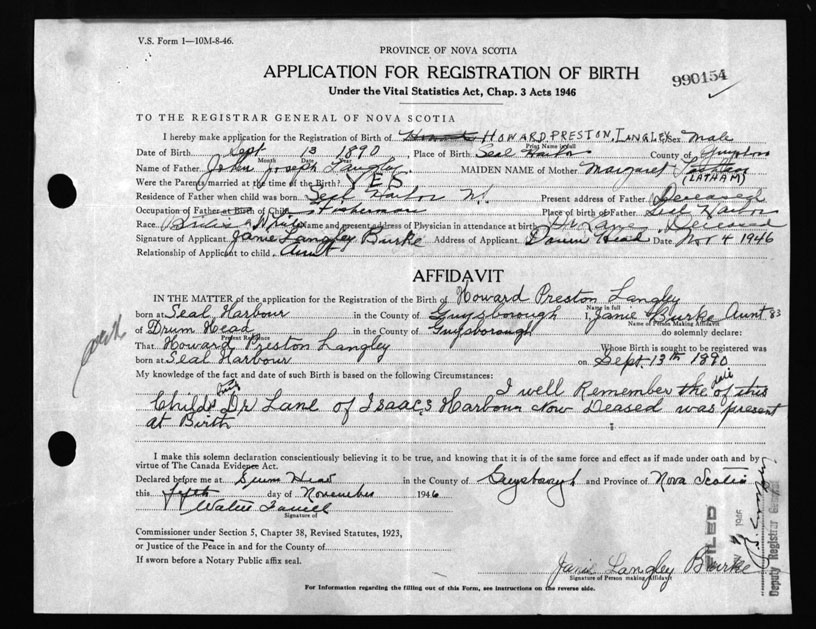 V.S. Form 1—10M-8-46.
PROVINCE OF NOVA SCOTIA
APPLICATION FOR REGISTRATION OF BIRTH
990154
Under the Vital Statistics Act, Chap. 3 Acts 1946
TO THE REGISTRAR GENERAL OF NOVA SCOTIA
I hereby make application for the Registration of Birth of HOWARD PRESTON, LANGLEY Sex Male
Print Name in full
Date of Birth Sept 13 1890 Place of Birth Seal Harbor County of
Month Date Year
Name of Father John Joseph Langley MAIDEN NAME of Mother Margaret
(LATHAM)
Were the Parents married at the time of the Birth? YES
Residence of Father when child was born Seal Harbor N.S. Present address of Father Deceased
Occupation of Father at Birth of Child Fisherman Place of birth of Father Seal Harbor
Race White Name and present address of Physician in attendance at birth Dr Lane, Deceased
Signature of Applicant Janie Langley Burke Address of Applicant Drum Head Date Nov 4 1946
Relationship of Applicant to child Aunt
AFFIDAVIT
IN THE MATTER of the application for the Registration of the Birth of Howard Preston Langley
Name in full
born at Seal Harbour in the County of Guysborough I, Janie Burke Aunt 83
Name of Person Making Affidavit
of Drum Head in the County of Guysborough do solemnly declare:
Present Residence
That Howard Preston Langley Whose Birth is sought to be registered was
born at Seal Harbour on Sept. 13th 1890
My knowledge of the fact and date of such Birth is based on the following Circumstances:
I well Remember the date of this
Childs Birth Dr Lane of Isaac,s Harbour Now Deased was present
at Birth
I make this solemn declaration conscientiously believing it to be true, and knowing that it is of the same force and effect as if made under oath and by
virtue of The Canada Evidence Act.
Declared before me at Drum Head in the County of Guysborough and Province of Nova Scotia
this fifth day of November 1946
Signature of
Commissioner under Section 5, Chapter 38, Revised Statutes, 1923,
or Justice of the Peace in and for the County of
If sworn before a Notary Public affix seal.
Janie Langley Burke
Signature of Person making Affidavit
For Information regarding the filling out of this Form, see instructions on the reverse side.
FILED
Deputy Registrar General